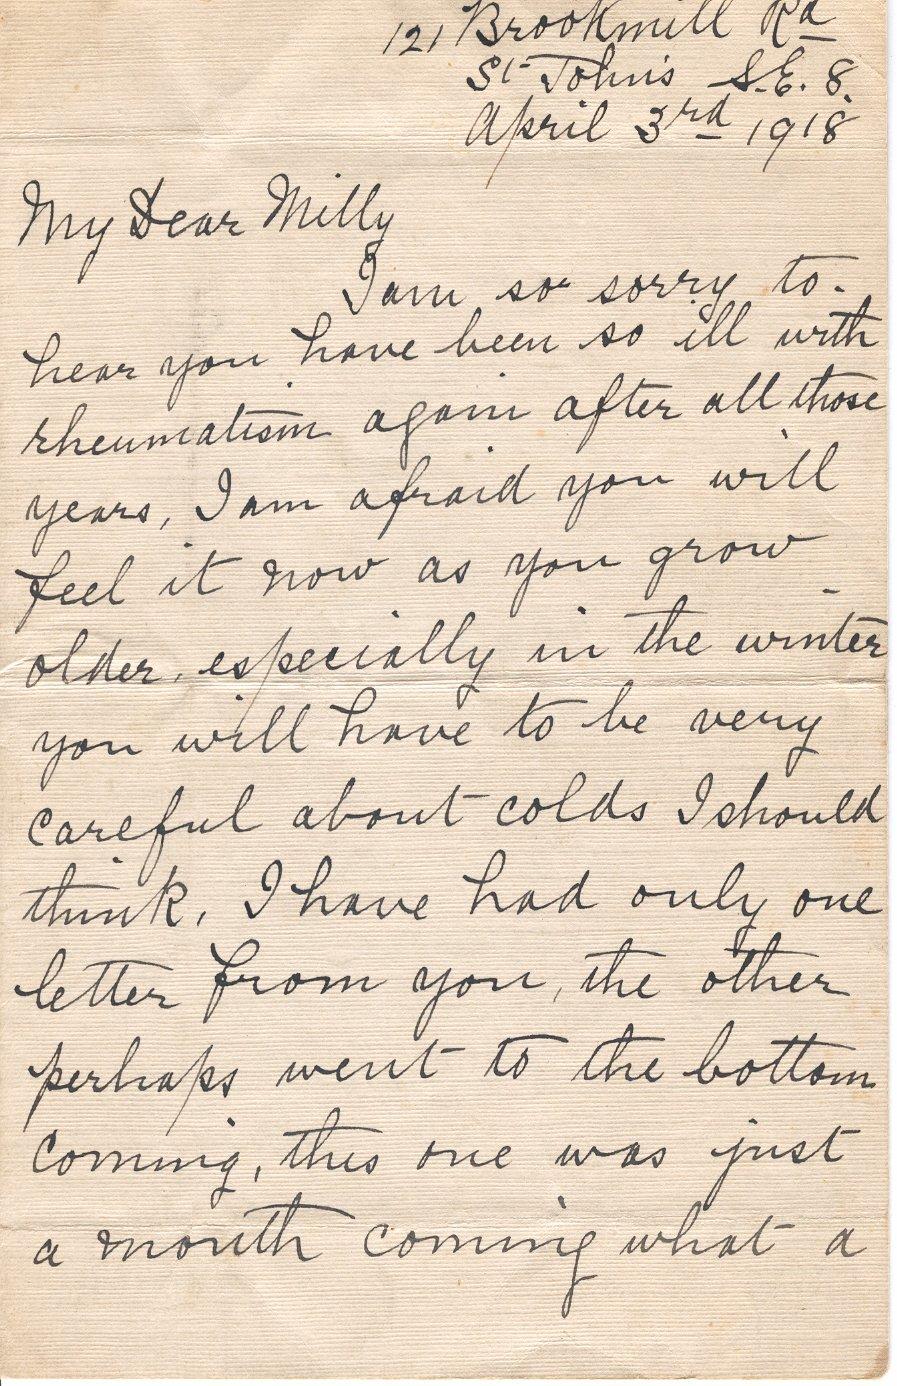 121 Brookmill Rd
St Johns S.E. 8.
April 3rd 1918
My Dear Milly
I am so sorry to
hear you have been so ill with
rheumatism again after all those
years, I am afraid you will
feel it now as you grow
older, especially in the winter
you will have to be very
careful about colds I should
think, I have had only one
letter from you, the other
perhaps went to the bottom
coming, this one was just
a month coming what a